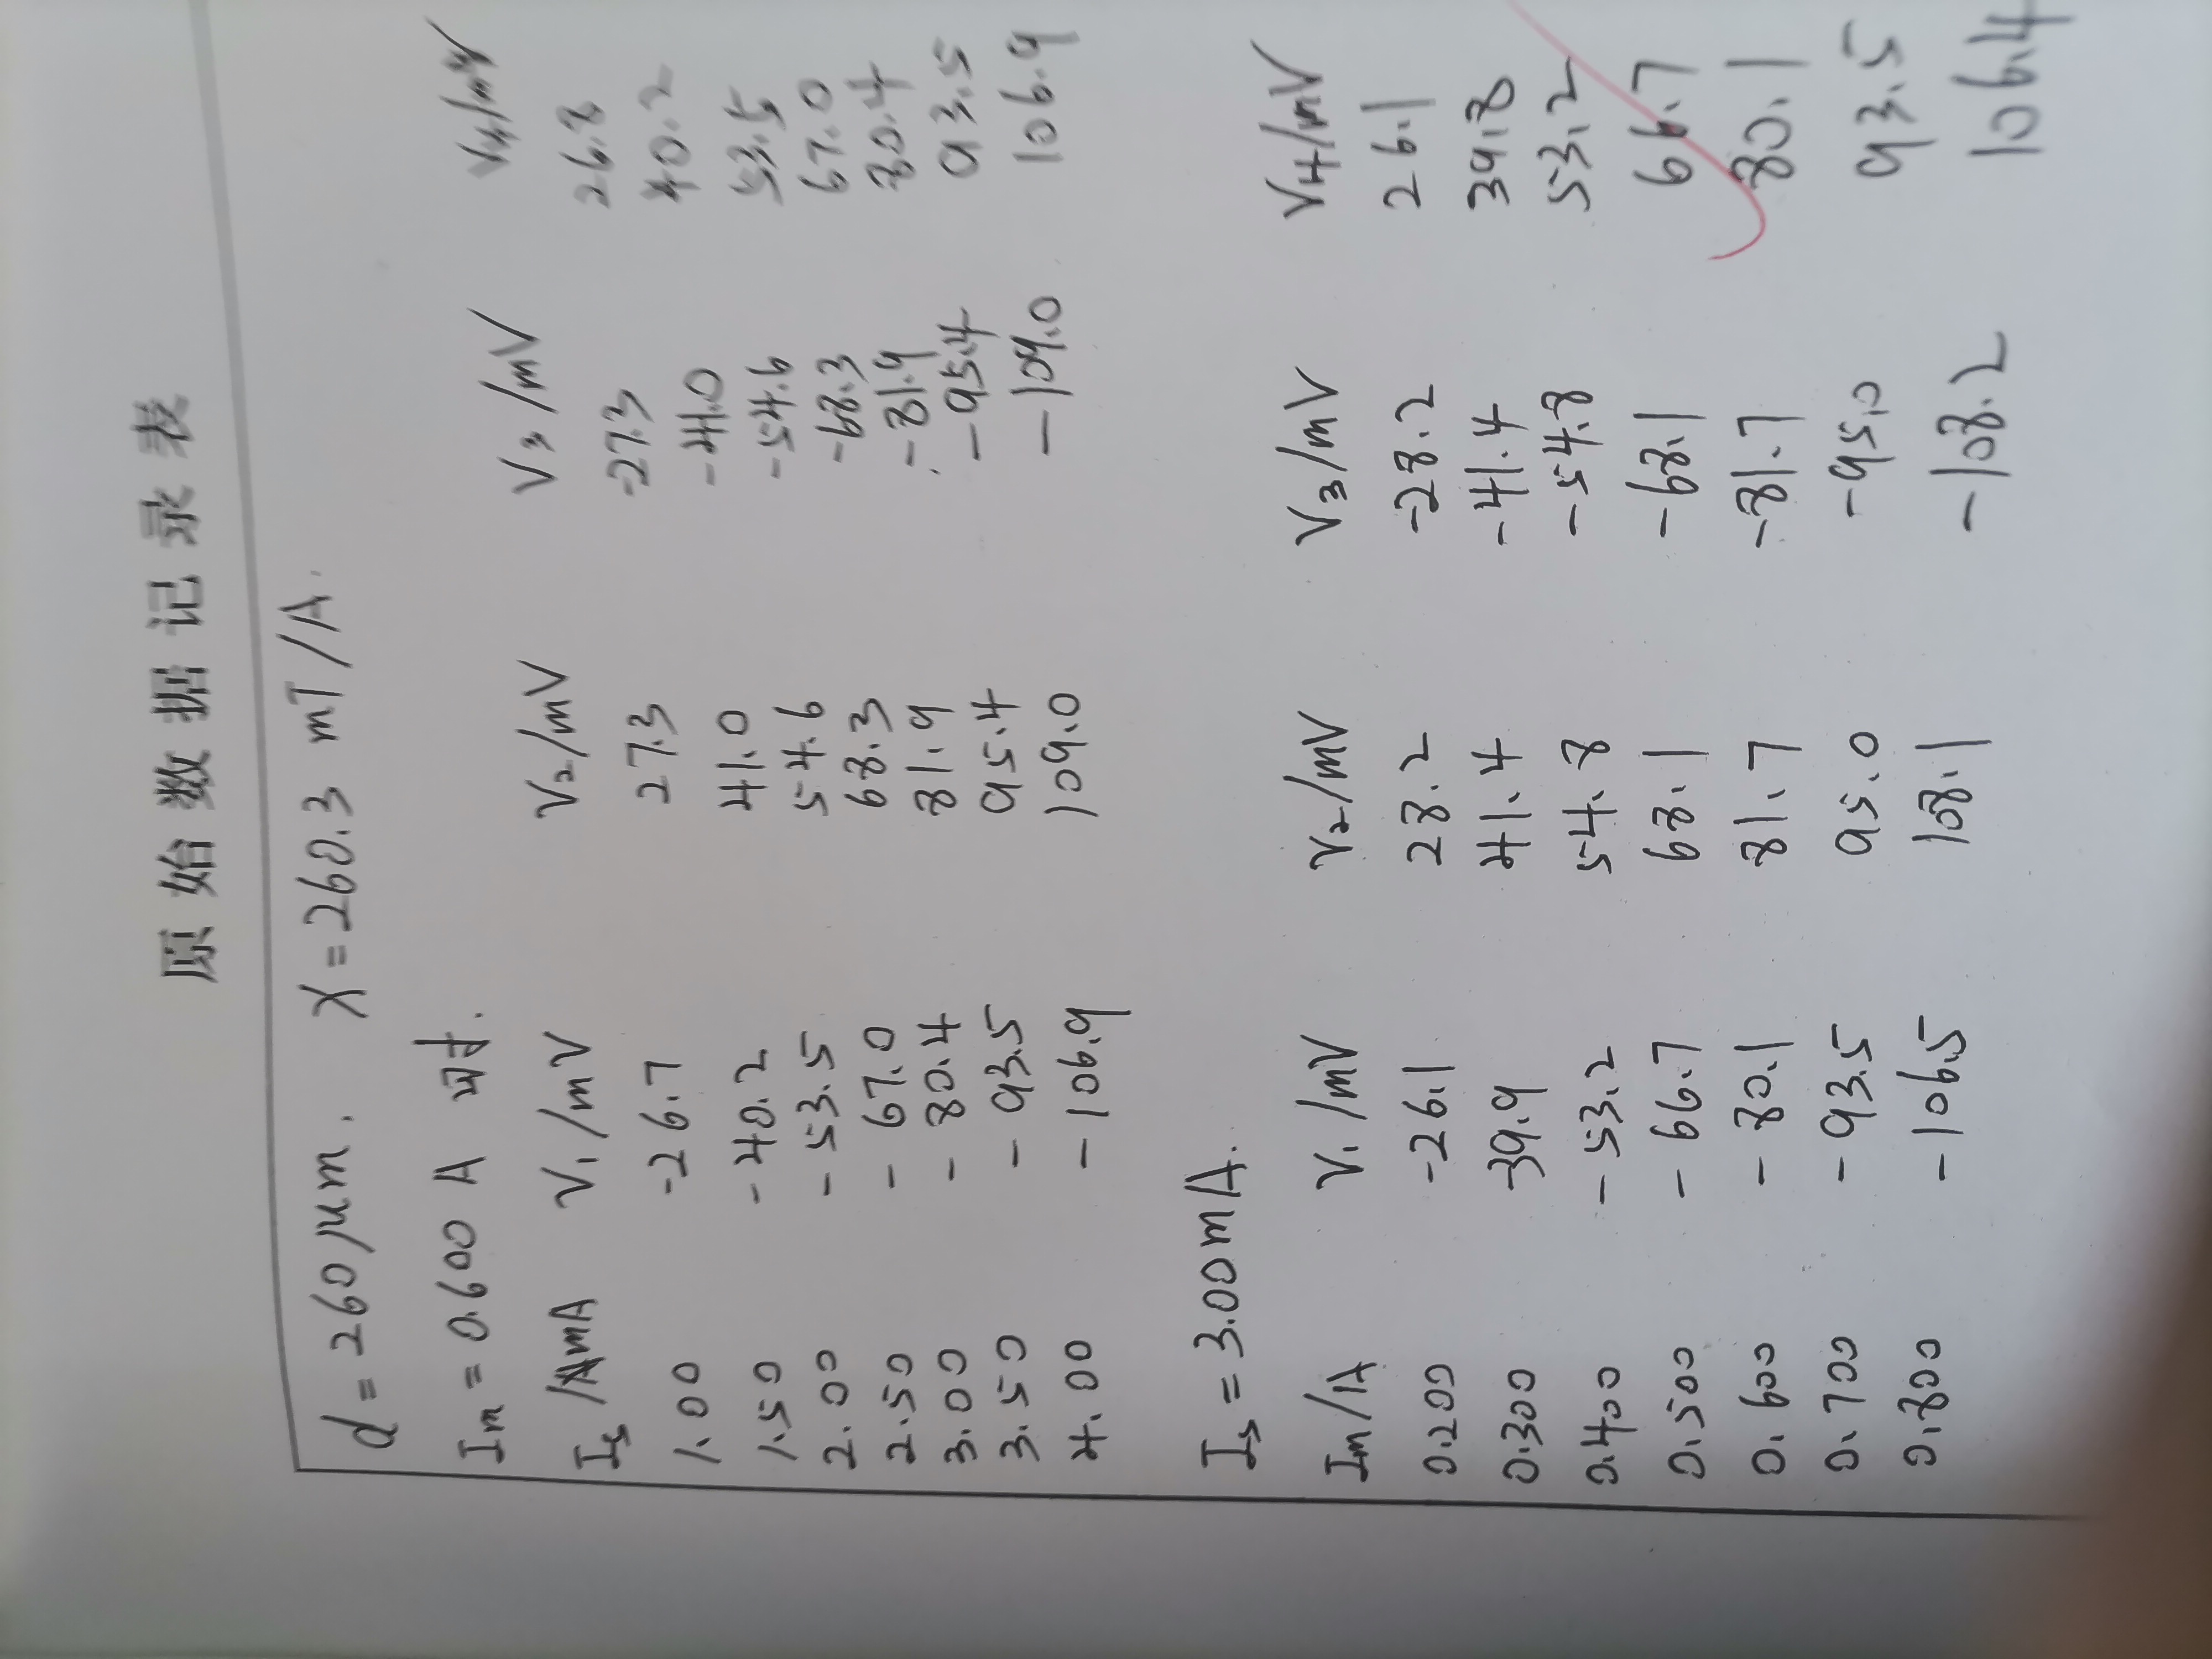 原始数据记录表
d = 260μm. X = 260.3 mT/A.
Im = 0.600 A 时.
Is /mA V₁/mV V₂/mV V₃/mV V₄/mV
1.00 -26.7 27.3 -27.3 26.8
1.50 -40.2 41.0 -41.0 40.2
2.00 -53.5 54.6 -54.6 53.5
2.50 -67.0 68.3 -68.3 67.0
3.00 -80.4 81.9 -81.9 80.4
3.50 -93.5 95.4 -95.4 93.5
4.00 -106.9 109.0 -109.0 106.9
Is = 3.00mA.
Im/A V₁/mV V₂/mV V₃/mV V₄/mV
0.200 -26.1 28.2 -28.2 26.1
0.300 -39.9 41.4 -41.4 39.8
0.400 -53.2 54.8 -54.8 53.2
0.500 -66.7 68.1 -68.1 66.7
0.600 -80.1 81.7 -81.7 80.1
0.700 -93.5 95.0 -95.0 93.5
0.800 -106.5 108.1 -108.2 106.4